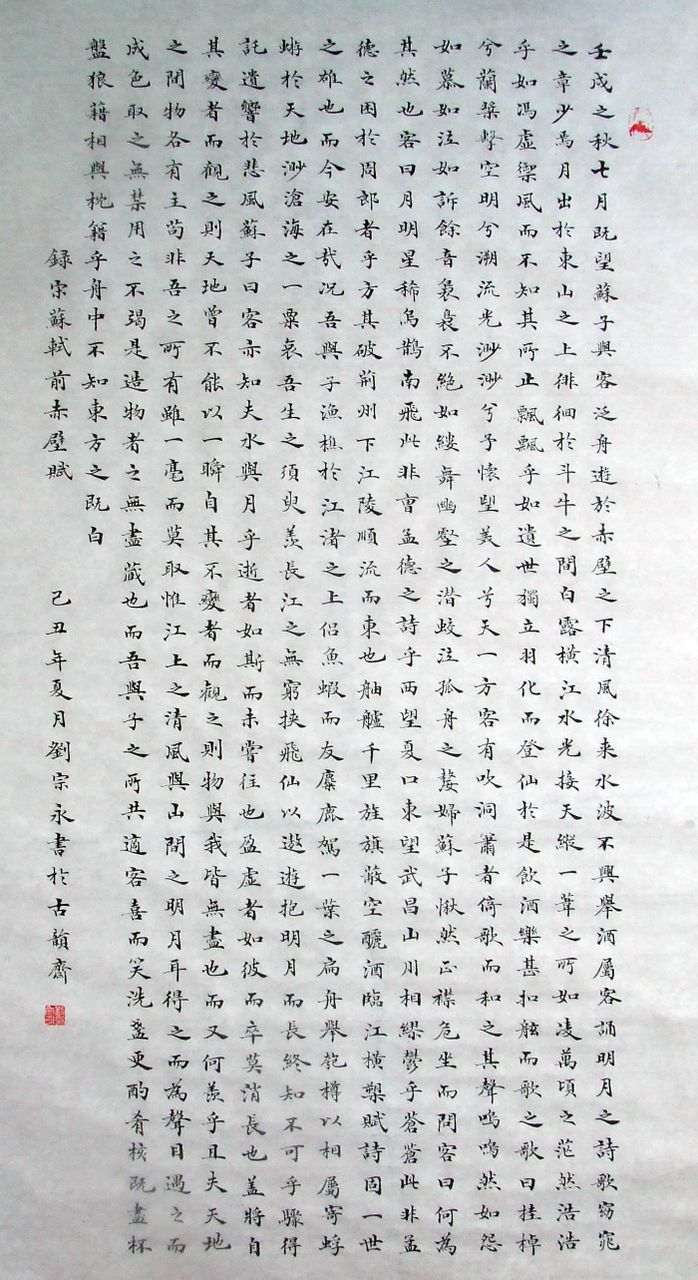 壬戌之秋七月既望蘇子與客泛舟遊於赤壁之下清風徐来水波不興舉酒屬客誦明月之詩歌窈窕
之章少焉月出於東山之上徘徊於斗牛之間白露橫江水光接天縱一葦之所如凌萬頃之茫然浩浩
乎如馮虛禦風而不知其所止飄飄乎如遺世獨立羽化而登仙於是飲酒樂甚扣舷而歌之歌曰桂棹
兮蘭槳擊空明兮溯流光渺渺兮予懷望美人兮天一方客有吹洞簫者倚歌而和之其聲嗚嗚然如怨
如慕如泣如訴餘音裊裊不絕如縷舞幽壑之潛蛟泣孤舟之嫠婦蘇子愀然正襟危坐而問客曰何為
其然也客曰月明星稀烏鵲南飛此非曹孟德之詩乎西望夏口東望武昌山川相繆鬱乎蒼蒼此非孟
德之困於周郎者乎方其破荊州下江陵順流而東也舳艫千里旌旗蔽空釃酒臨江橫槊賦詩固一世
之雄也而今安在哉况吾與子漁樵於江渚之上侶魚蝦而友麋鹿駕一葉之扁舟舉匏樽以相屬寄蜉
蝣於天地渺滄海之一粟哀吾生之須臾羨長江之無窮挾飛仙以遨遊抱明月而長終知不可乎驟得
託遺響於悲風蘇子曰客亦知夫水與月乎逝者如斯而未嘗往也盈虛者如彼而卒莫消長也蓋將自
其變者而觀之則天地曾不能以一瞬自其不變者而觀之則物與我皆無盡也而又何羨乎且夫天地
之間物各有主苟非吾之所有雖一毫而莫取惟江上之清風與山間之明月耳得之而為聲目遇之而
成色取之無禁用之不竭是造物者之無盡藏也而吾與子之所共適客喜而笑洗盞更酌肴核既盡杯
盤狼籍相與枕籍乎舟中不知東方之既白
錄宋蘇軾前赤壁賦 己丑年夏月劉宗永書於古韻齋